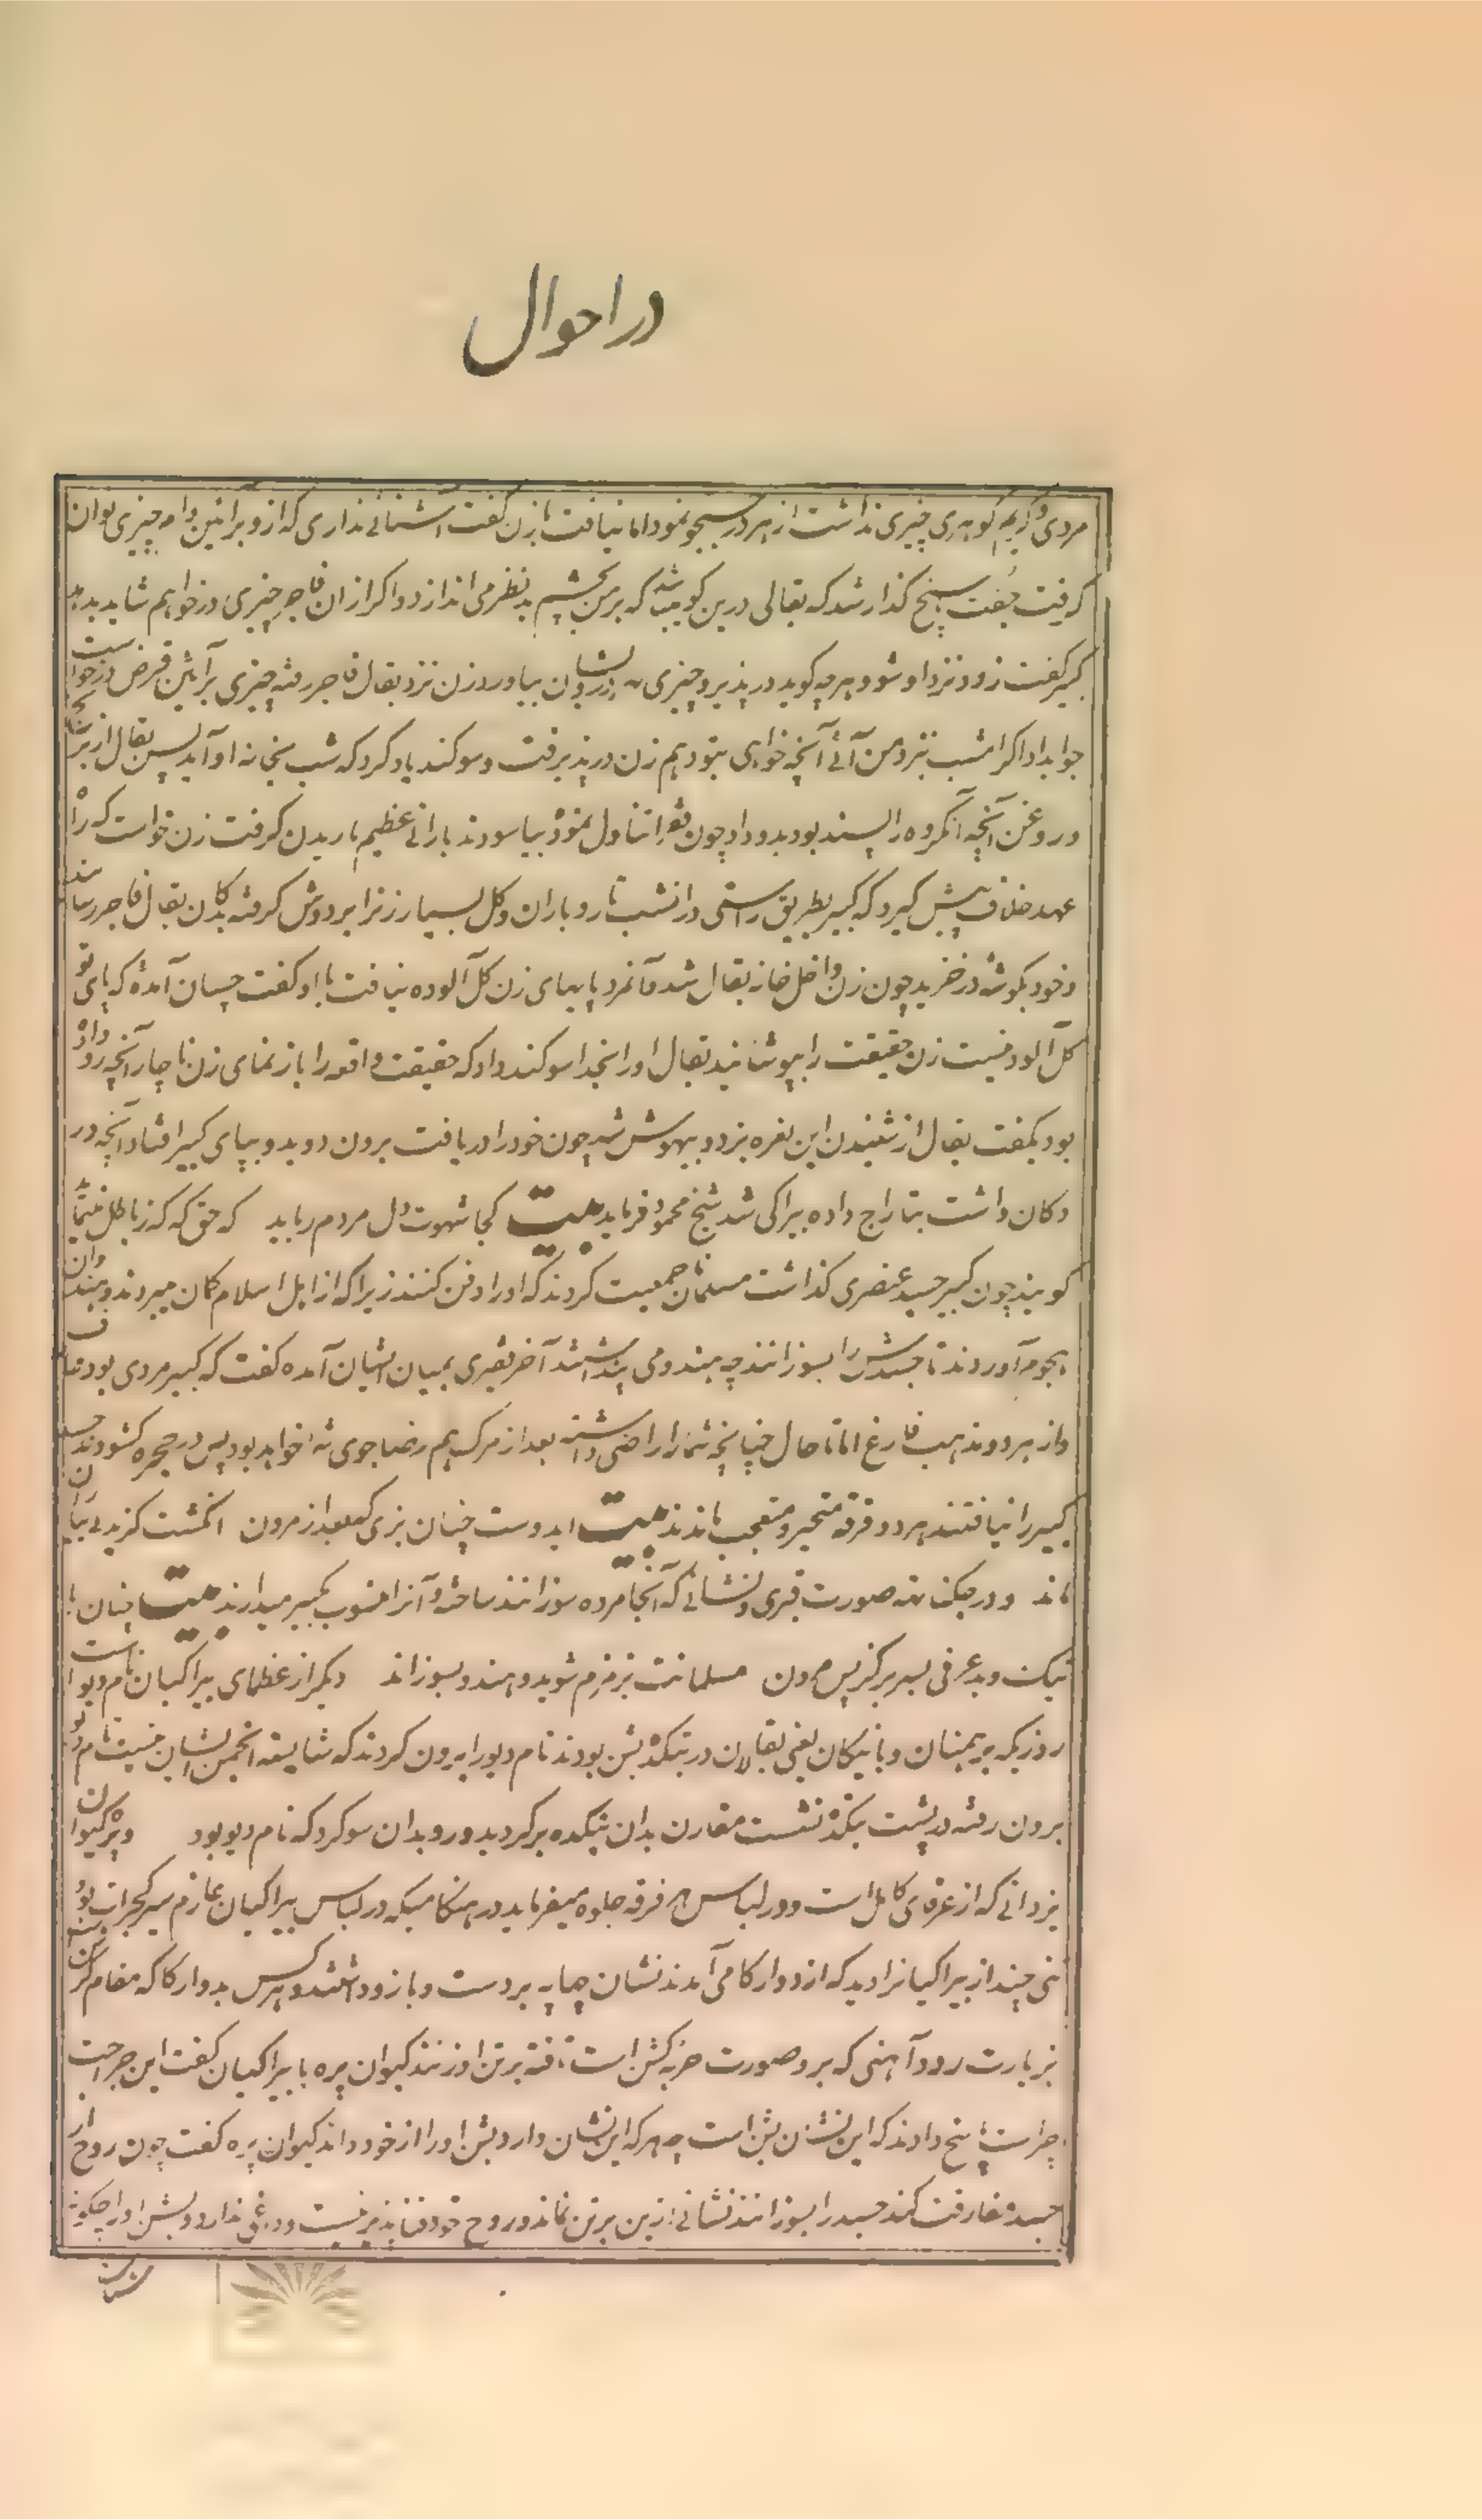 در احوال
مردی کریم گوهری چیزی نداشت از هر در جستجو نمود اما نیافت با زن گفت آشنائے نداری که از و برائین وام چیزی توان
گرفت جفت پاسخ گذار شد که بقالی درین کو میباشد که بر من بچشم بد نظر می اندازد و اگر ازان فاجر چیزی درخواهم شاید بدهد
کبیر گفت زود نزد او شو و هر چه گوید در پذیر و چیزی به درویشان بیاور زن نزد بقال فاجر رفته چیزی برآئین قرض درخواست
جواب داد اگر امشب نزد من آئے آنچه خواهی بتو دهم زن در پذیرفت و سوگند یاد کرد که شب بخانه او آید پس بقال از برنج
و روغن آنچه آنگروه را پسند بود بدو داد چون فقرا تناول نموده بیاسودند بارانے عظیم باریدن گرفت زن خواست که راه
عهد خلاف پیش گیرد که کبیر بطریق راستی در انشب تار و باران و گل بسیار زنرا بردوش گرفته بدکان بقال فاجر رسانید
و خود بگوشه درخزید چون زن داخل خانه بقال شد و آنمرد پابهای زن گل آلوده نیافت با او گفت چسان آمدهٔ که پای تو
گل آلود نیست زن حقیقت را بپوشانید بقال او را بخدا سوگند داد که حقیقت واقعه را باز نمای زن ناچار آنچه رو داده
بود بگفت بقال از شنیدن این نعره بزد و بیهوش شد چون خود را دریافت برون دوید و بپای کبیر افتاد و آنچه در
دکان داشت بتاراج داده بیراگی شد شیخ محمود فرماید بیت کجا شهوت دل مردم رباید که حق گه گه ز باطل مینماید
گویند چون کبیر جسد عنصری گذاشت مسلمانان جمعیت کردند که او را دفن کنند زیرا که از اهل اسلام گمان میبردند و هندوان
هجوم آوردند تا جسدش را بسوزانند چه هندو می پنداشتند آخر فقیری بمیان ایشان آمده گفت که کبیر مردی بود عارف
و از هر دو مذهب فارغ اما تا حال چنانچه شما را راضی داشته بعد از مرگ هم رضا جوی شما خواهد بود پس در حجره گشودند جسد
کبیر را نیافتند هر دو فرقه متحیر و متعجب ماندند بیت ایدوست چنان بزی که بعد از مردن انگشت گزیدنے بیاران
ماند و در جگنناته صورت قبری و نشانے که آنجا مرده سوزانند ساخته و آنرا منسوب بکبیر میدارند بیت چنان با
نیک و بد عرفی بسر بر کز پس مردن مسلمانت بزمزم شوید و هندو بسوزاند دیگر از عظمای بیراگیان نام دیو است
روزیکه برهمنان و بانیکان یعنی بقالان در بتکدهٔ بشن بودند نام دیو را برون کردند که شایسته انجمن ایشان نیست نام دیو
برون رفته در پشت بتکده نشست مقارن بدان بتکده برگردید و رو بدان سو کرد که نام دیو بود و پره کیوان
یزدانے که از عرفای کامل است و در لباس هر فرقه جلوه میفرماید در هنگامیکه در لباس بیراگیان عازم سیر گجرات بود
تنی چند از بیراگیانرا دید که از دوارکا می آمدند نشان چهاپه بر دست و بازو داشتند و هر کس بدوارکا که مقام کشن
بزیارت رود آهنی که برو صورت حربه کشن است تفته بر تن او زنند کیوان پره با بیراگیان گفت این جراحت
چراست پاسخ دادند که این نشان بشن است چه هر که این نشان دارد بشن او را از خود داند کیوان پره گفت چون روح از
جسد مفارقت کند جسد را بسوزانند نشانے ازین بر تن نماند و روح خود فناپذیر نیست و داغی ندارد و بشن او را چگونه